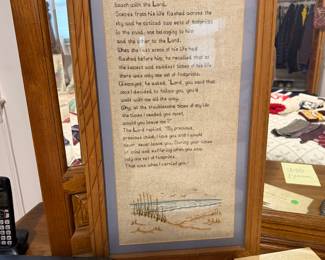 beach with the Lord.
Scenes from his life flashed across the
sky and he noticed two sets of footprints
in the sand, one belonging to him
and the other to the Lord.
When the last scene of his life had
flashed before him, he recalled that at
the lowest and saddest times of his life
there was only one set of footprints.
Dismayed, he asked, "Lord, you said that
once I decided to follow you, you'd
walk with me all the way.
Why, at the troublesome times of my life
the times I needed you most,
would you leave me?"
The Lord replied, "My precious,
precious child, I love you and I would
never, never leave you. During your times
of trial and suffering when you saw
only one set of footprints,
That was when I carried you."